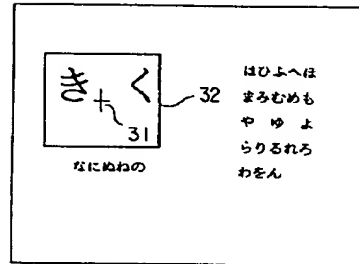 き く
31
32
なにぬねの
はひふへほ
まみむめも
や ゆ よ
らりるれろ
わをん